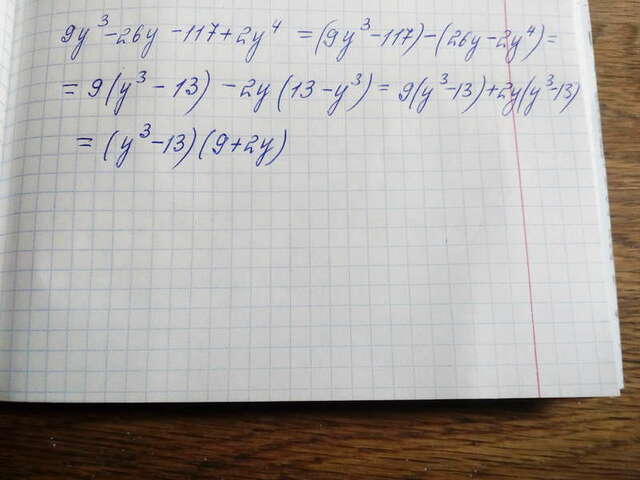 9y³-26y-117+2y⁴ =(9y³-117)-(26y-2y⁴)=
=9(y³-13)-2y(13-y³)=9(y³-13)+2y(y³-13)
=(y³-13)(9+2y)